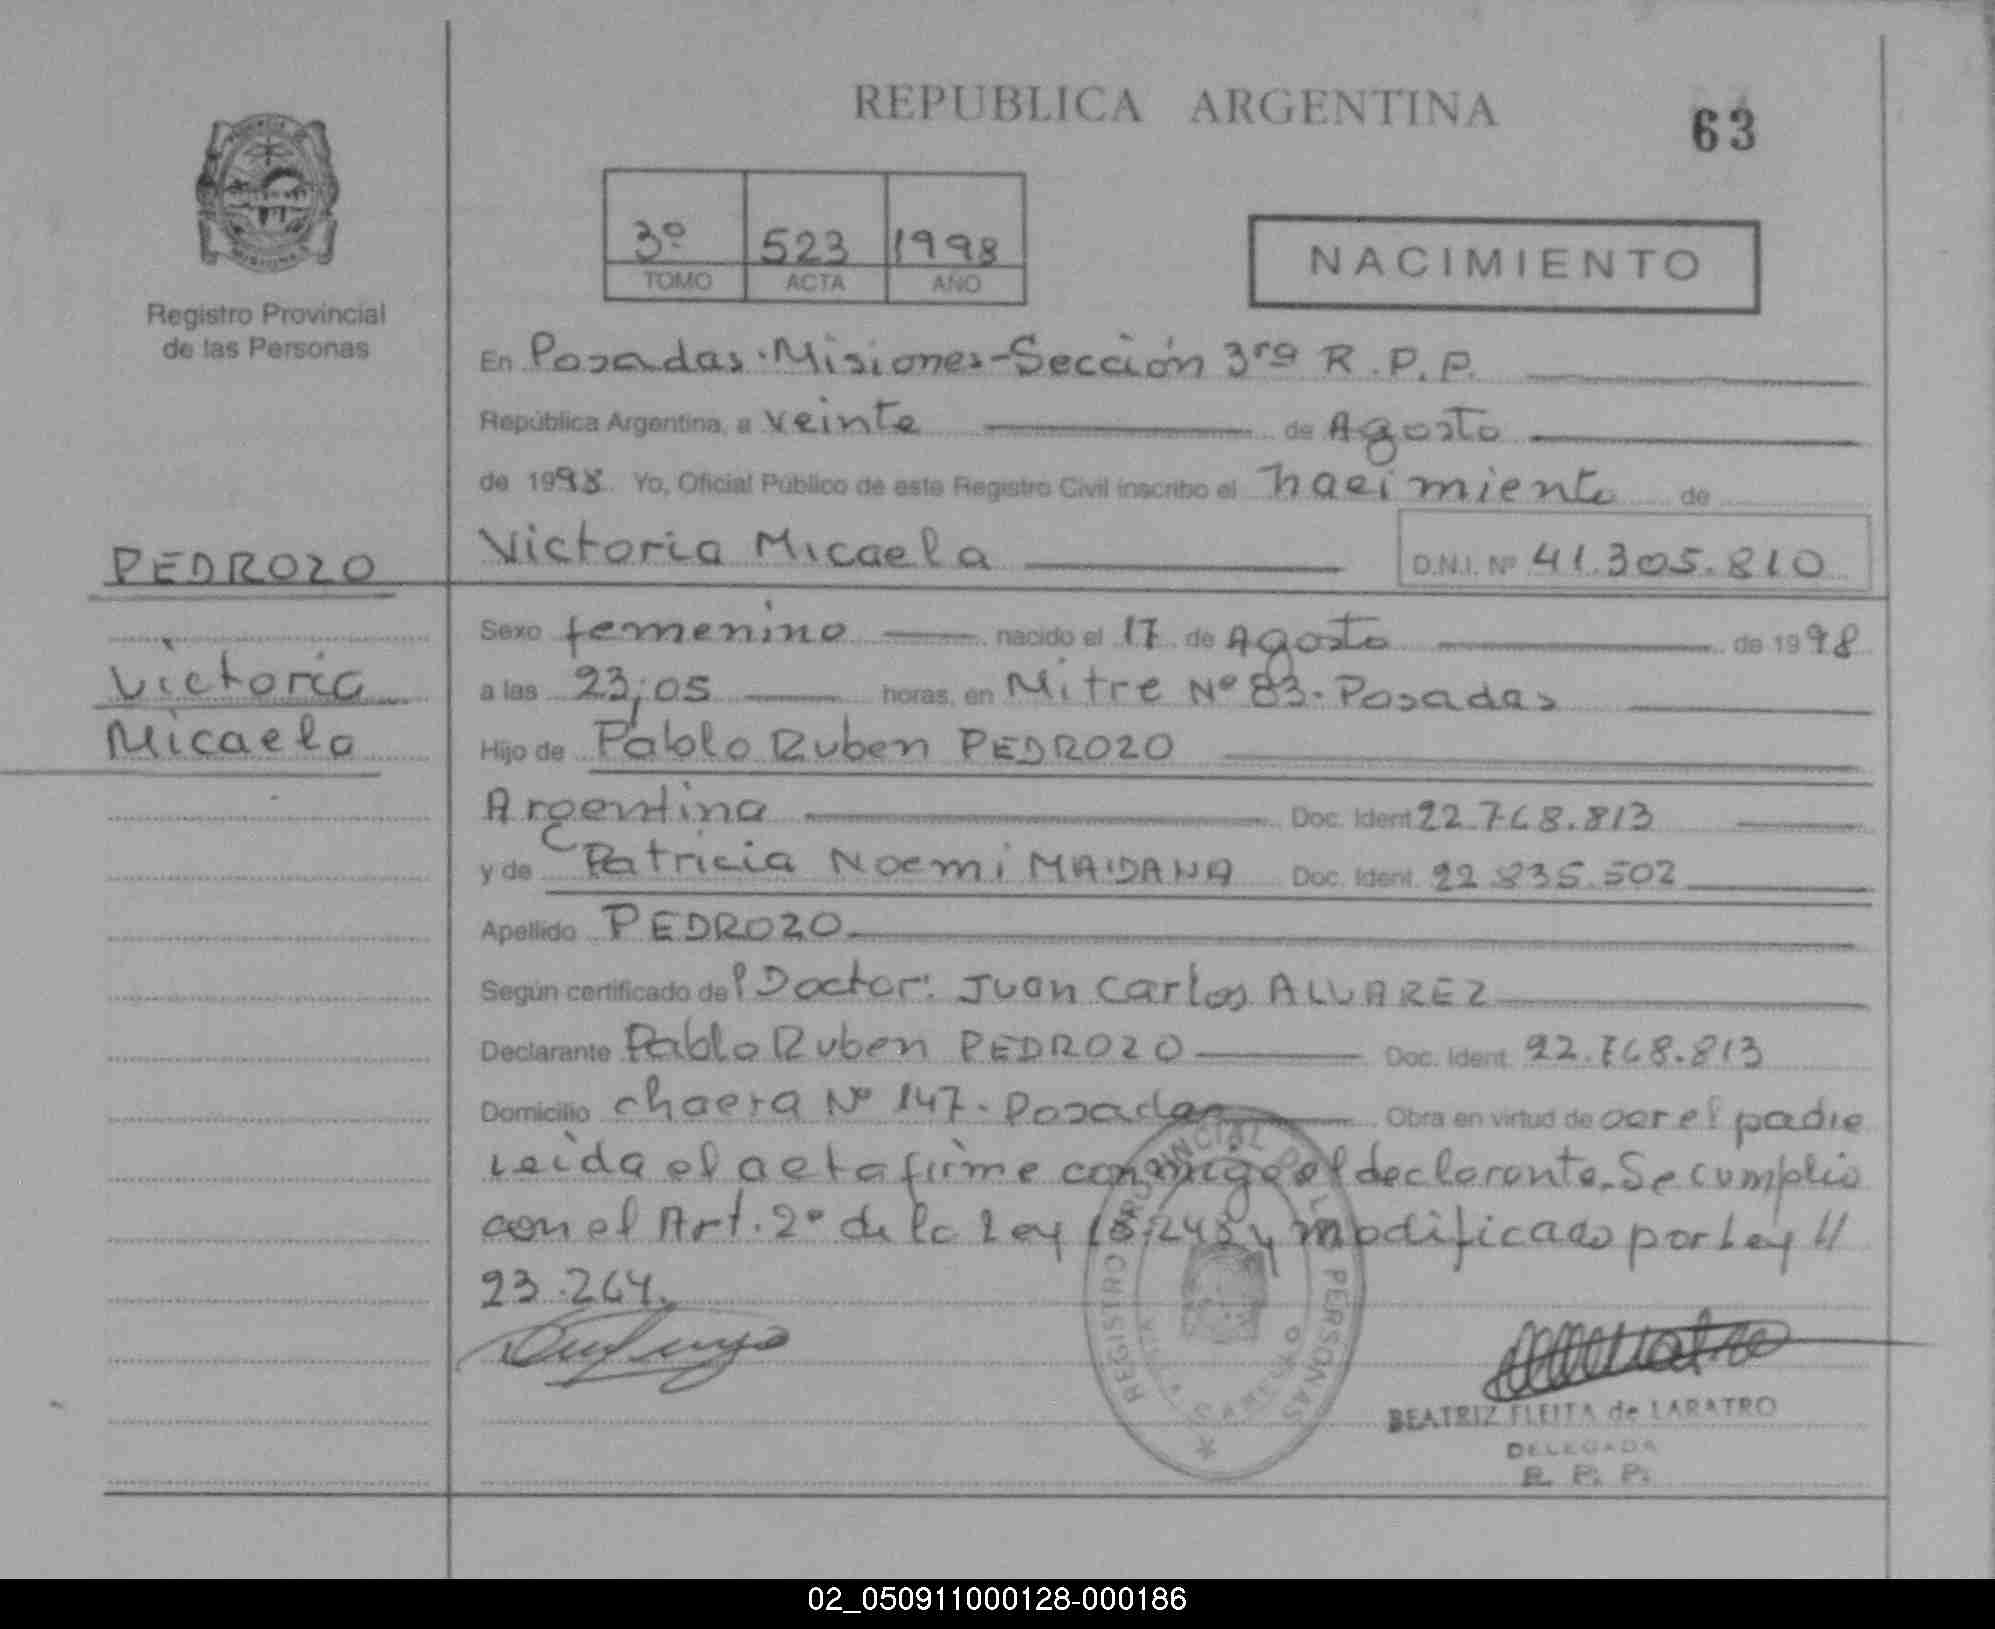 REPUBLICA ARGENTINA
63
3º 523 1998
TOMO ACTA AÑO
NACIMIENTO
Registro Provincial
de las Personas
En Posadas-Misiones-Sección 3ra R.P.P.
República Argentina, a veinte de Agosto
de 1998 Yo, Oficial Público de este Registro Civil inscribo el nacimiento de
PEDROZO
Victoria Micaela D.N.I. Nº 41.305.810
Sexo femenino nacido el 17 de Agosto de 1998
Victoria
a las 23,05 horas, en Mitre Nº 83-Posadas
Micaela
Hijo de Pablo Ruben PEDROZO
Argentina Doc. Ident 22.768.813
y de Patricia Noemi MAIDANA Doc. Ident. 22.835.502
Apellido PEDROZO
Según certificado del Doctor: Juan Carlos ALVAREZ
Declarante Pablo Ruben PEDROZO Doc. Ident. 22.768.813
Domicilio chacra Nº 147-Posadas Obra en virtud de ser el padre
Leida el acta firme conmigo el declarante. Se cumplio
con el Art. 2º de la Ley 18.248 y modificado por Ley //
23.264.
REGISTRO PROVINCIAL DE L PERSONAS
BEATRIZ FLEITA de LARATRO
DELEGADA
R. P. P.
02_050911000128-000186